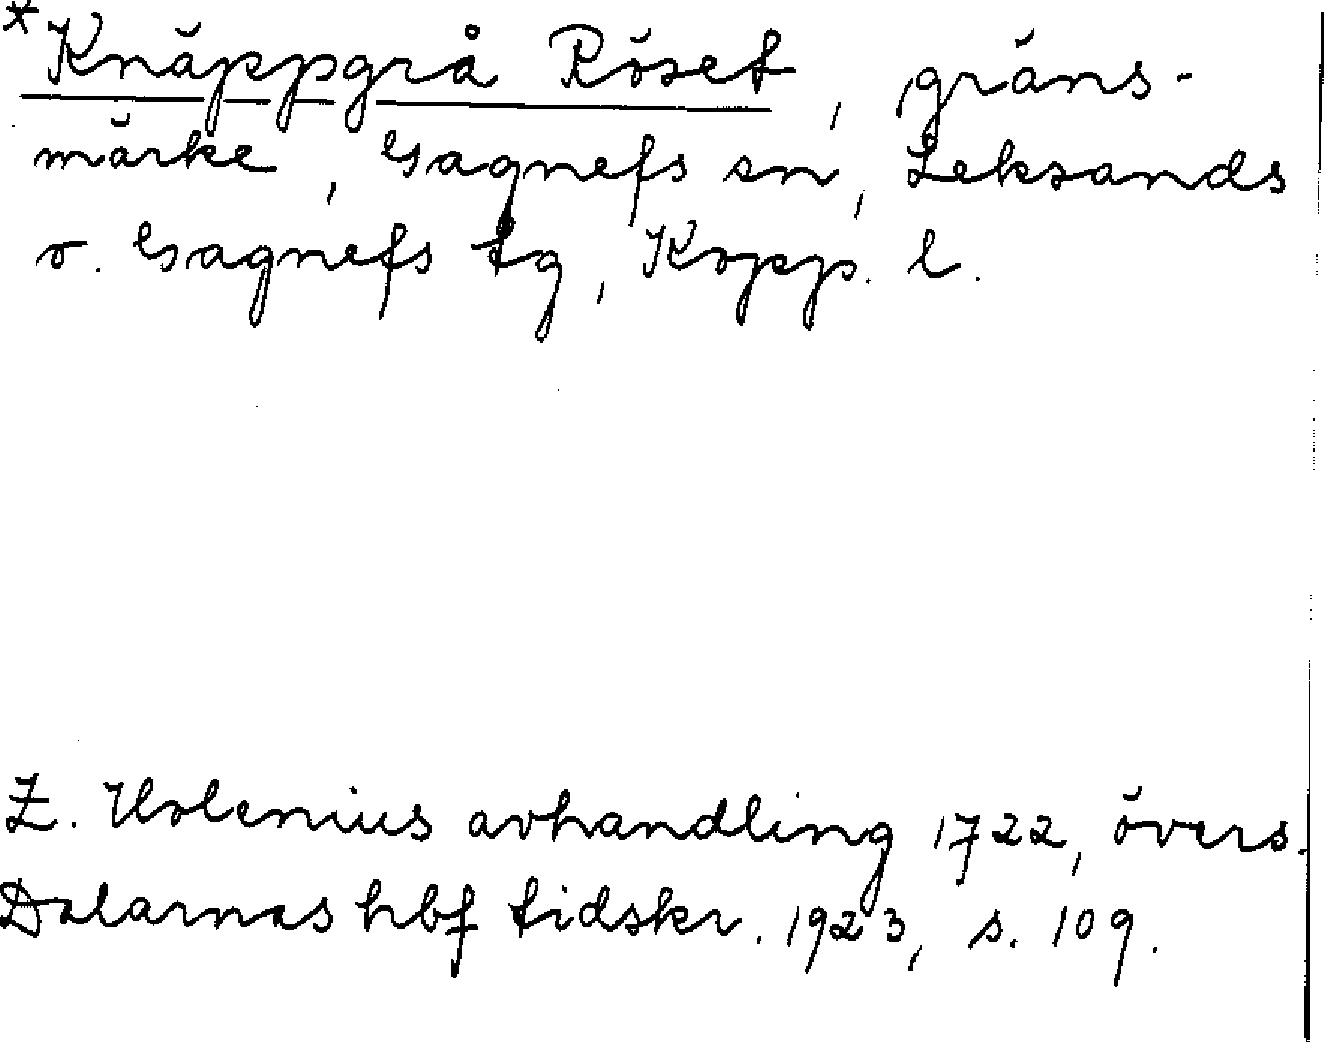 *Knäppgrå Röset, gräns-
märke, Gagnefs sn, Leksands
o. Gagnefs tg, Kopp. l.
Z. Holenius avhandling 1722, övers.
Dalarnas hbf tidskr. 1923, s. 109.